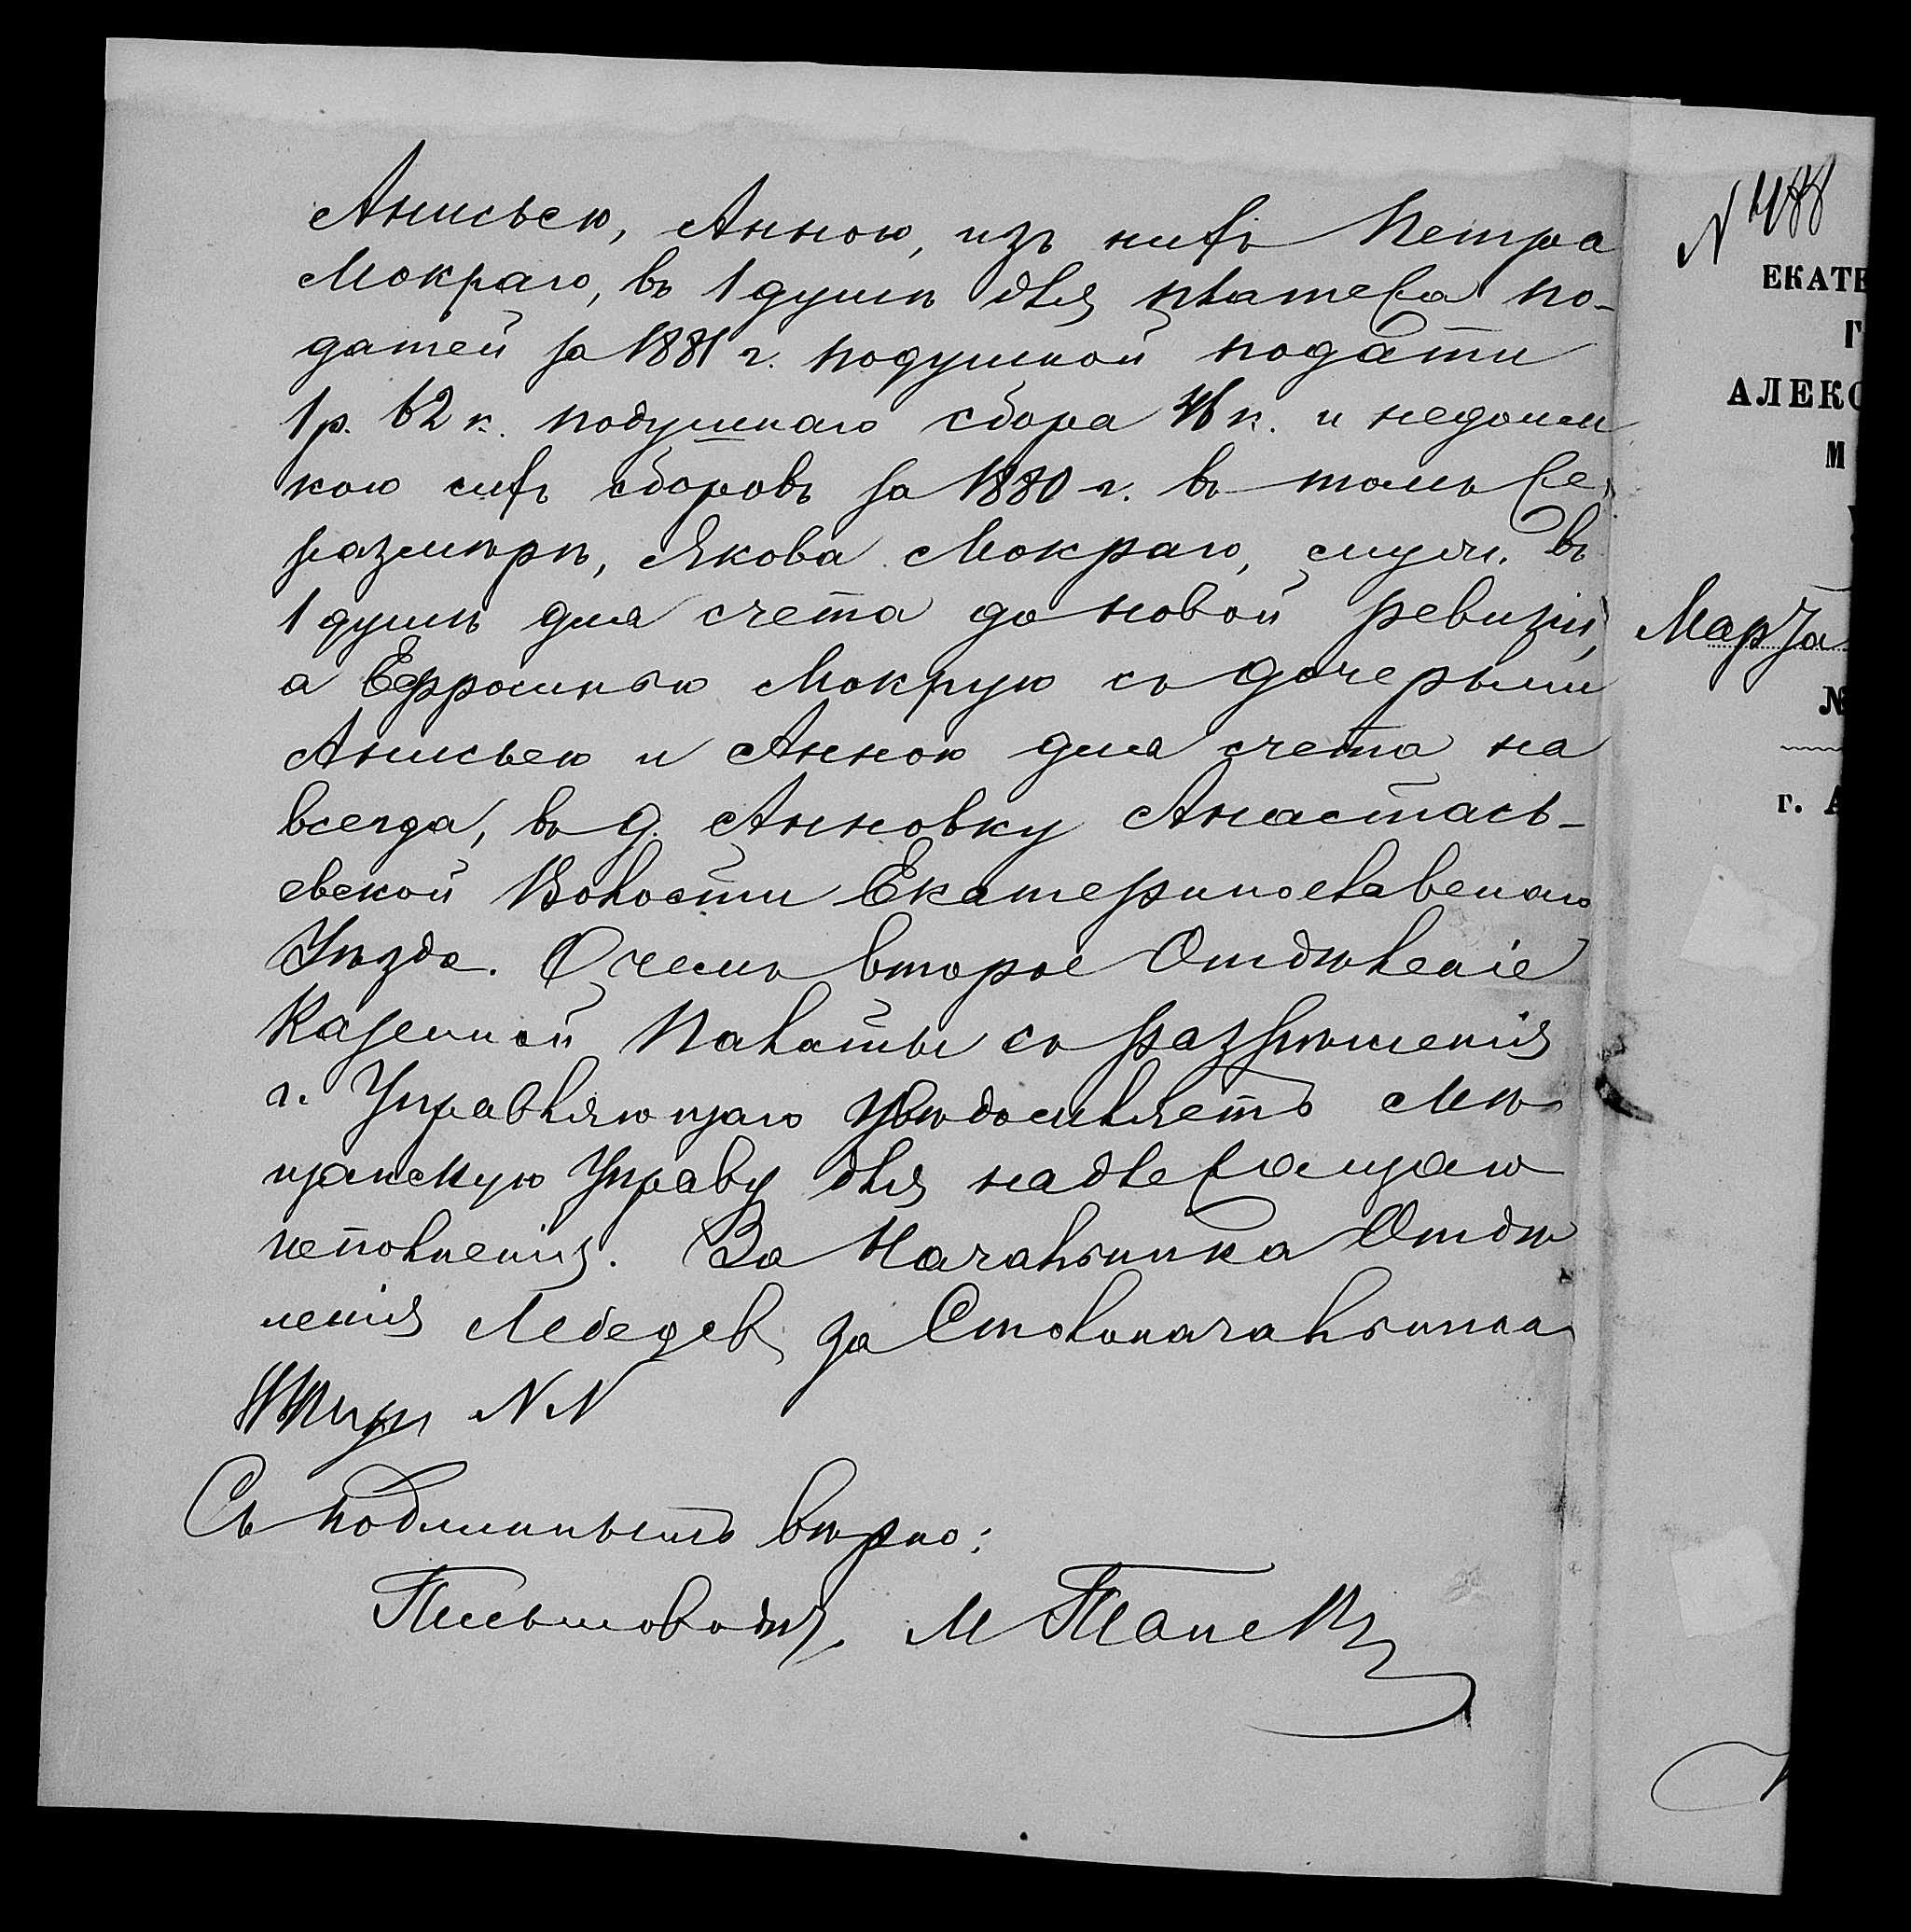 Анисьею, Анною, изъ нихъ Петра
Мокраго, въ 1 душѣ для платежа по-
датей за 1881 г. подушной подати
1 р. 62 к. подушнаго сбора 46 к. и недоим
кою сихъ сборовъ за 1880 г. въ томъ же
размѣрѣ, Якова Мокраго, въ
1 душѣ для счета до новой ревизіи,
а Ефросинью Мокрую съ дочерьми
Анисьею и Анною для счета на
всегда, въ д. Анновку Анастась-
евской Волости Екатеринославскаго
Уѣзда. О чемъ второе Отдѣленіе
Казенной Палаты съ разрѣшенія
г. Управляющаго увѣдомляетъ Мѣ
щанскую Управу для надлежащаго
исполненія. За Начальника Отдѣ
ленія Лебедев, за Столоначальника
NN
Съ подлиннымъ вѣрно:
Письмоводит. М
N 488
ЕКАТЕ
Г
АЛЕКС
М
Марта
№
г. А